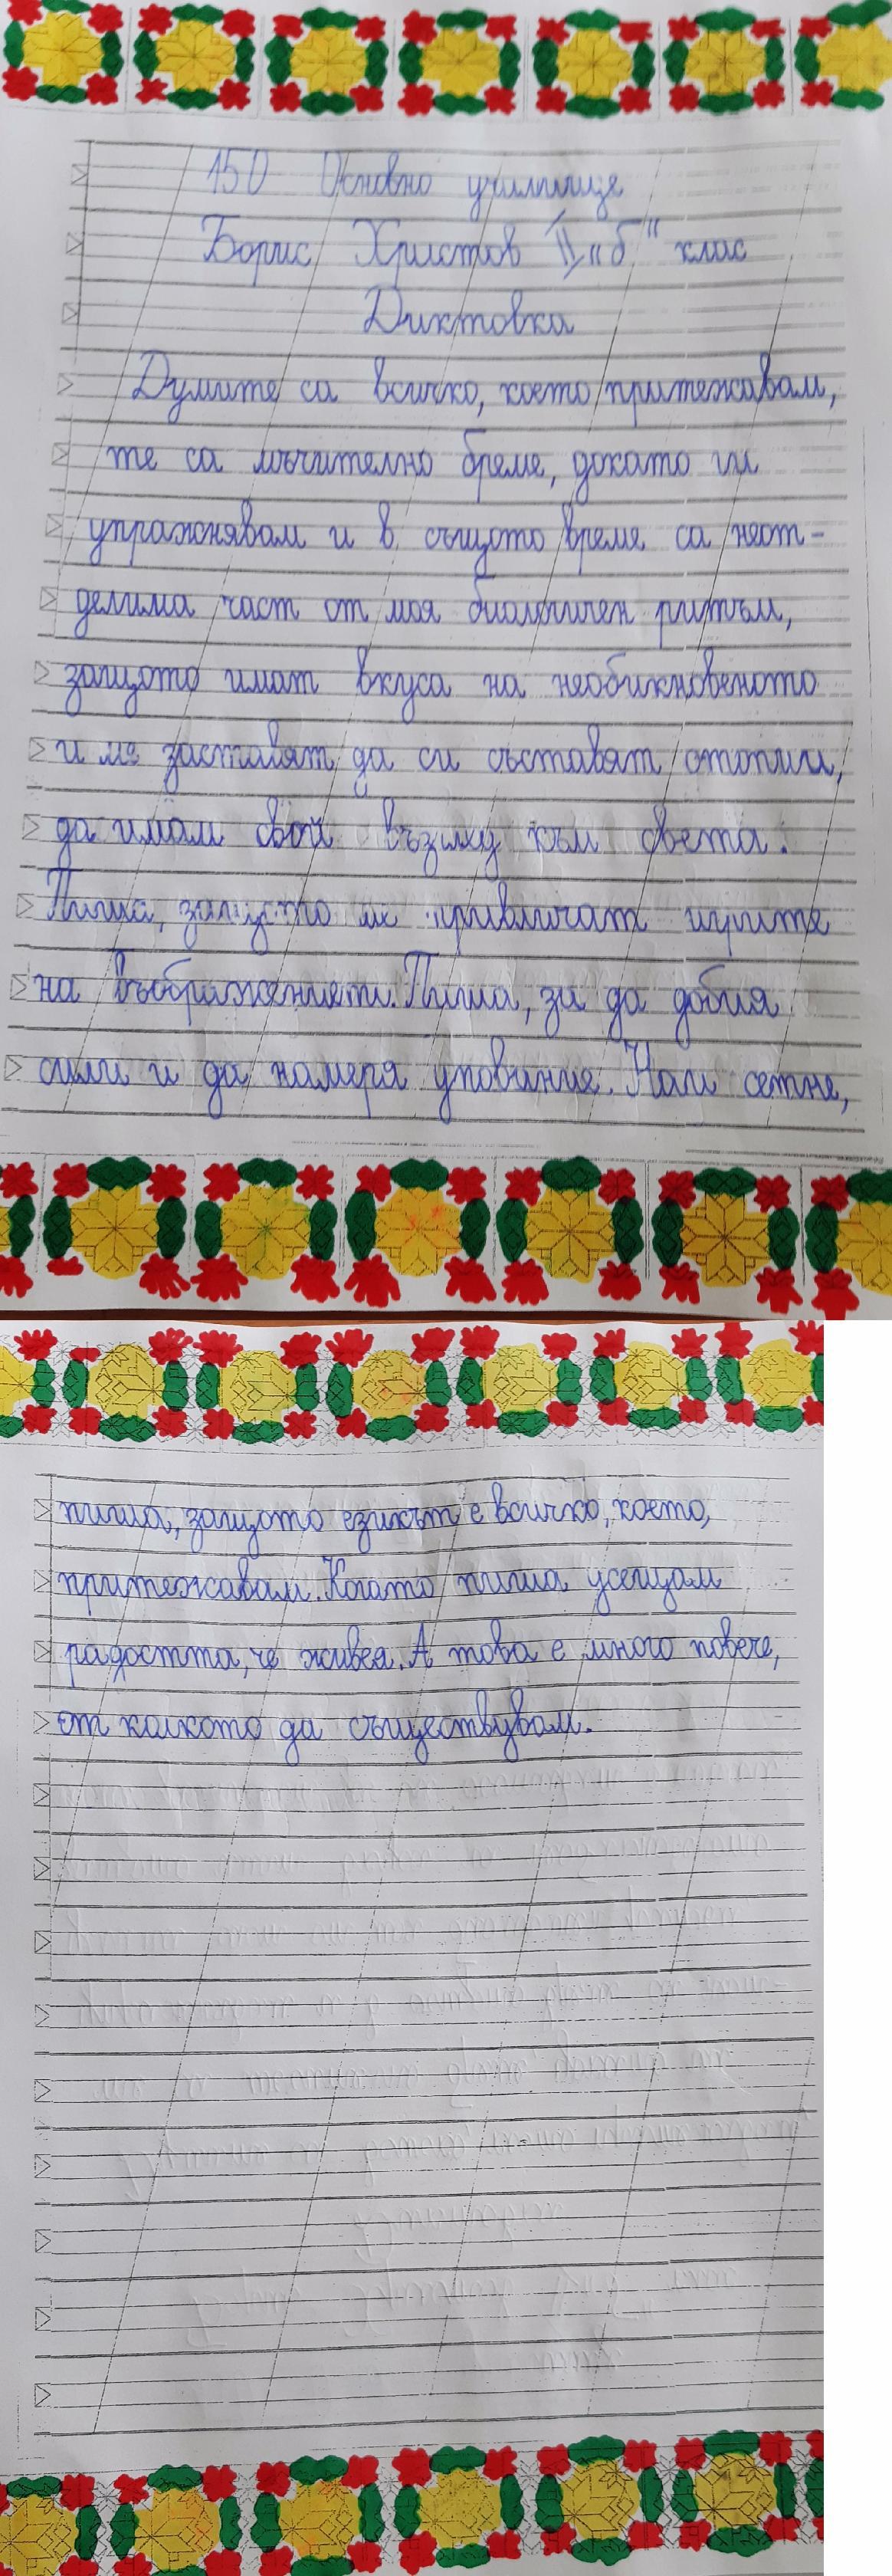 150 Основно училище
Борис Христов II "б" клас
Диктовка
Думите са всичко, което притежавам,
те са мъчително бреме, докато ги
упражнявам и в същото време са неот-
делима част от моя биологичен ритъм,
защото имат вкуса на необикновеното
и ме заставят да си съставят
да имам свой към света.
Пиша, защото ме привличат игрите
на въображението. Пиша, за да добия
сили и да намеря упование. Най сетне,
пиша, защото езикът е всичко, което,
притежавам. Когато пиша усещам
радостта, че живея. А това е много повече,
от колкото да съществувам.